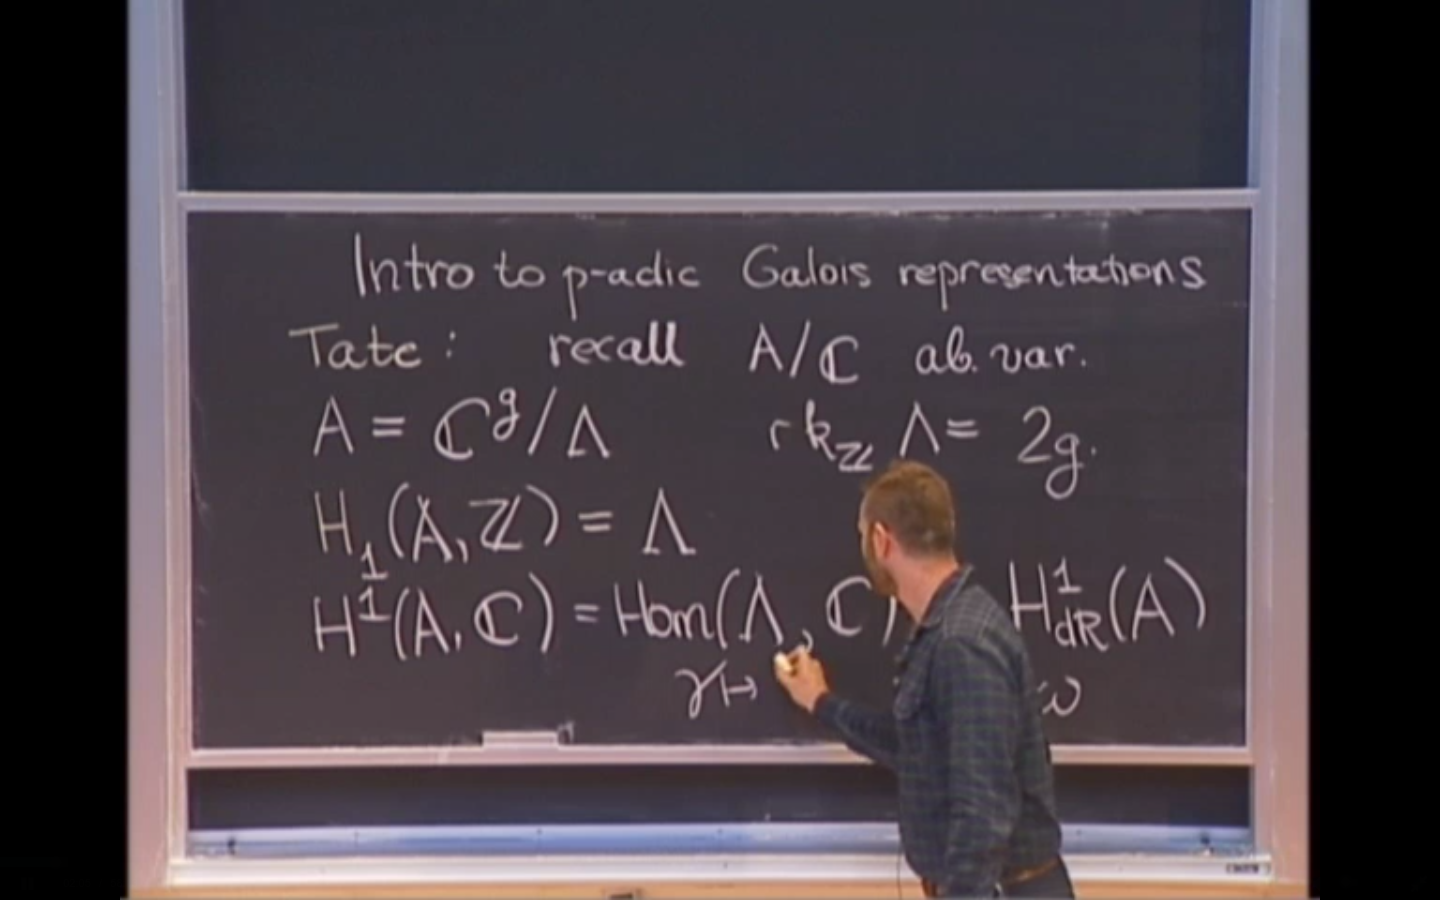 Intro to p-adic Galois representations
Tate: recall A/ℂ ab. var.
A = ℂ^g/Λ rk_ℤ Λ = 2g.
H_1(A, ℤ) = Λ
H^1(A, ℂ) = Hom(Λ, ℂ) H^1_dR(A)
γ ↦ ω